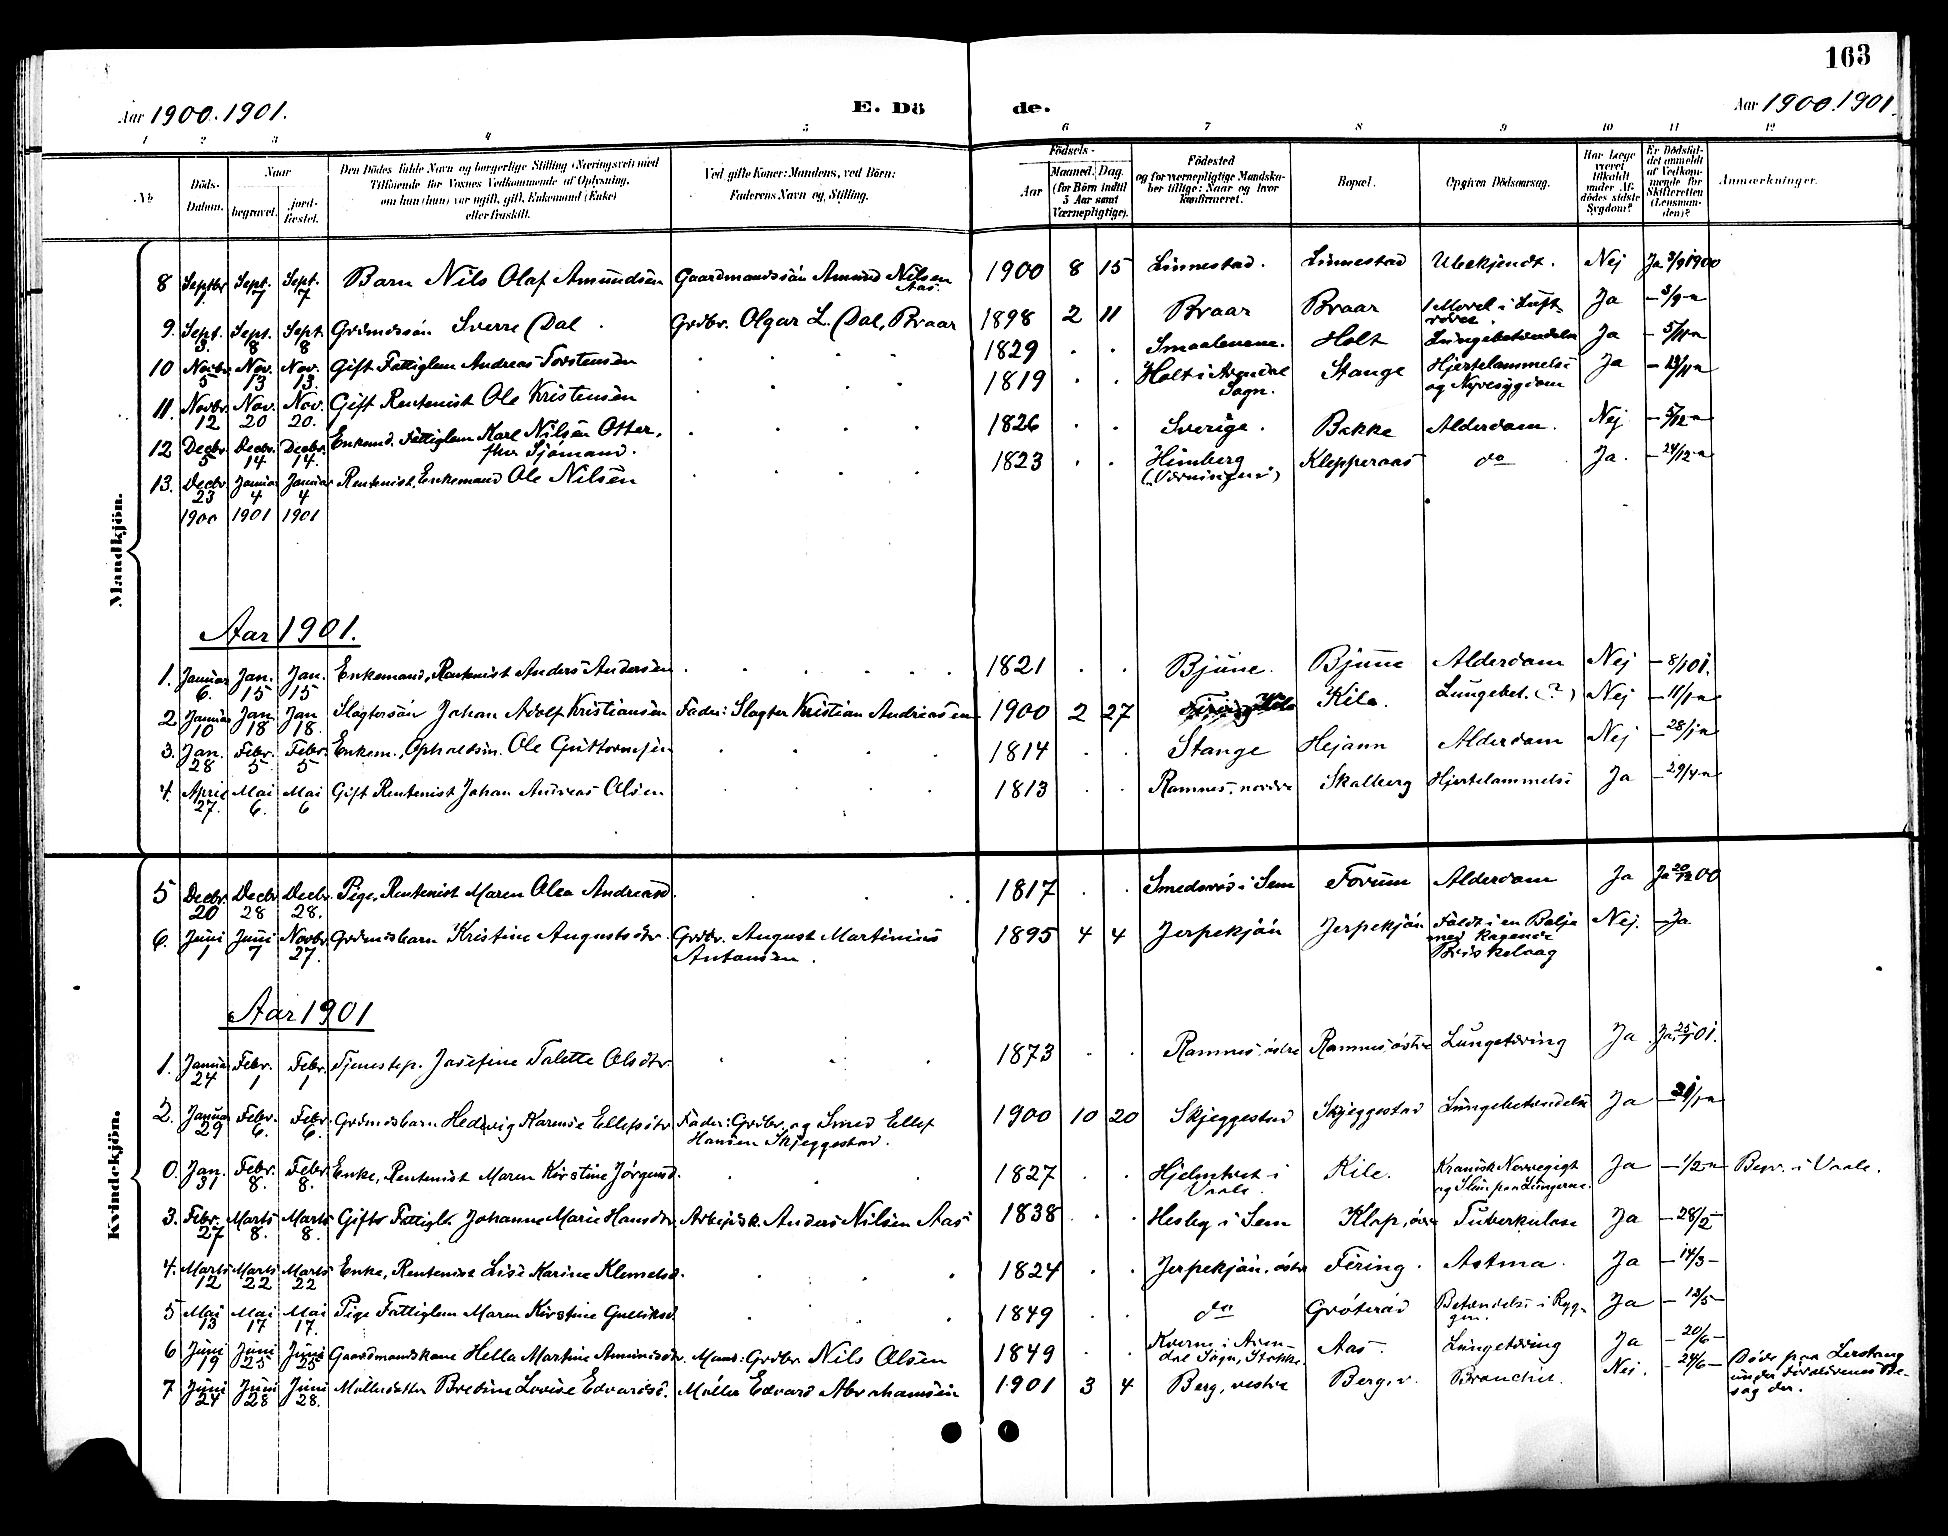 163
Aar 1900. 1901. E. Dö de. Aar 1900. 1901.
1 2 3 4 5 6 7 8 9 10 11 12
No
Döds-Datum.
Naar
begravet.
jord-fæstet.
Den Dödes fulde Navn og borgerlige Stilling (Næringsvei) med
Tilföiende for Voxnes Vedkommende af Oplysning,
om han (hun) var ugift, gift, Enkemand (Enke)
eller fraskilt.
Ved gifte Koner: Mandens, ved Börn:
Faderens Navn og Stilling.
Födsels-
Aar
Maaned. Dag.
(for Börn indtil
5 Aar samt
Værnepligtige).
Födested
og for værnepligtige Mandska-
ber tillige: Naar og hvor
konfirmeret.
Bopæl.
Opgiven Dödsaarsag.
Har Læge
været
tilkaldt
under Af-
dödes sidste
Sygdom?
Er Dödsfal-
det anmeldt
af Vedkom-
mende for
Skifteretten
(Lensman-
den)?
Anmærkninger.
Mandkjön.
8 Septbr Sept. 7 Sept. 7 Barn Nils Olaf Amundsen Gaardmandssön Amund Nilsen Aas. 1900 8 15 Linnestad. Linnestad Ubekjendt. Nej Ja 3/9 1900
9. Sept. 3. Sept. 8 Sept. 8 Grdmdssön Sverre Dal. Grdbr. Olgar L. Dal, Braar 1898 2 11 Braar Braar 1 Morel i Luft-röret. Ja
10 Novbr. 5 Nov. 13 Nov. 13. Gift Fattiglem Andreas Torstensen 1829 Smaalenene. Holt Lungebetændelse Ja
11. Novbr. 12 Nov. 20 Nov. 20. Gift Rentenist Ole Kristensen 1819 Holt i Arendal Sogn. Stange Hjertelammelse og Nyresygdom Ja
12 Decbr. 5 Decbr. 14 Decbr. 14. Enkemd. Fattiglem Karl Nilsen Otter, fhv. Sjömand. 1826 Sverige. Bakke Alderdom. Nej - 5/12 -
13. Decbr. 23 1900 Januar 4 1901 Januar 4 1901 Rentenist, Enkemand Ole Nilsen 1823 Himberg Klepperaas do Ja. - 24/12 -
Aar 1901.
1. Januar 6. Jan. 15 Jan. 15 Enkemand, Rentenist Anders Andersen 1821 Bjune. Bjune Alderdom Nej - 8/1 01.
2 Januar 10 Jan. 18 Jan 18. Slagtersön Johan Adolf Kristiansen Fader: Slagter Kristian Andreassen 1900 2 27 Kile. Lungebet. (?) Nej - 11/1 -
3. Jan. 28 Febr. 5 Febr. 5 Enkem., Opholdsm. Ole Guttormsen 1814 Stange Hejann Alderdom Nej - 28/1 -
4. April 27. Mai 6. Mai 6 Gift Rentenist Johan Andreas Olsen 1813 Ramnes, nordre Skalberg Hjertelammelse Ja - 29/4 -
Kvindekjön.
5 Decbr. 20 Decbr 28 Decbr. 28. Pige, Rentenist Maren Olea Andreasd. 1817 Smedsröd i Sem Forum Alderdom Ja Ja 20/12 00
6. Juni 1 Juni 7 Novbr. 27. Grdmdsbarn Kristine Augustsdtr. Grdbr. August Martinius Antonsen. 1895 4 4 Jerpekjön Jerpekjön Faldt i en Balje med kogende Briskelaag Nej. - Ja
Aar 1901
1. Januar 24 Febr. 1 Febr. 1 Tjenestep. Josefine Talette Olsdtr. 1873 Ramnes, östre Ramnes östre Lungetæring Ja Ja, 25/1 01.
2. Januar 29 Febr. 6. Febr. 6. Grdmdsbarn Hedevig Karense Ellefsdtr Fader: Grdbr. og Smed Ellef Hansen Skjeggestad. 1900 10 20 Skjeggestad Skjeggestad Lungebetændelse Ja
0. Jan. 31 Febr. 8. Febr. 8. Enke, Rentenist Maren Kirstine Jörgensd. 1827 Hjelmtvet i Vaale. Kile. Kronisk Nervegigt og Slim paa Lungerne. Ja - 1/2 - Begr. i Vaale.
3. Febr. 27 Marts 8. Marts 8. Gifte Fattigl. Johanne Marie Hansdtr. Arbejdsk. Anders Nilsen Aas 1838 Hesby i Sem Klop, övre Tuberkulose Ja - 28/2 -
4. Marts 12 Marts 22 Marts 22 Enke, Rentenist Lise Karine Klemetsd. 1824 Jerpekjön, östre Firing. Astma. Ja - 14/3 -
5 Mai 13 Mai 17 Mai 17. Pige Fattiglem Maren Kirstine Gulliksd. 1849 do Gröteröd Betændelse i Ryg-gen. Ja - 13/5 -
6 Juni 19 Juni 25 Juni 25 Gaardmandskone Hella Martine Amundsdtr. Mand: Grdbr. Nils Olsen 1849 Kverne i Aren-dal Sogn, Stokke Aas Lungetæring Ja - 20/6 -
7 Juni 24 Juni 28 Juni 28. Mölledatter Bredine Lovise Edvardsd. Möller Edvard Abrahamsen 1901 3 4 Berg, vestre Berg, v. Bronchit. Nei. - 24/6 - Döde paa Lerstang under Forældrenes Be-sög der.